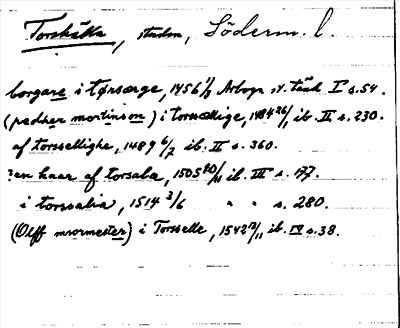 Torshälla, staden, Söderm. l.
borgare i tørsærge, 1456 1/3 Arboga st. tänk. I s. 54.
(pedher mortinson) i torsællige, 1484 26/1 ib. II s. 230.
af torssellighe, 1489 6/7 ib. II s. 360.
:en haar af torsala, 1505 20/11 ib. III s. 177.
i torssalia, 1514 3/6 " " s. 280.
(Olff mwrmester) i Torsselle, 1542 /11 ib. IV s. 38.